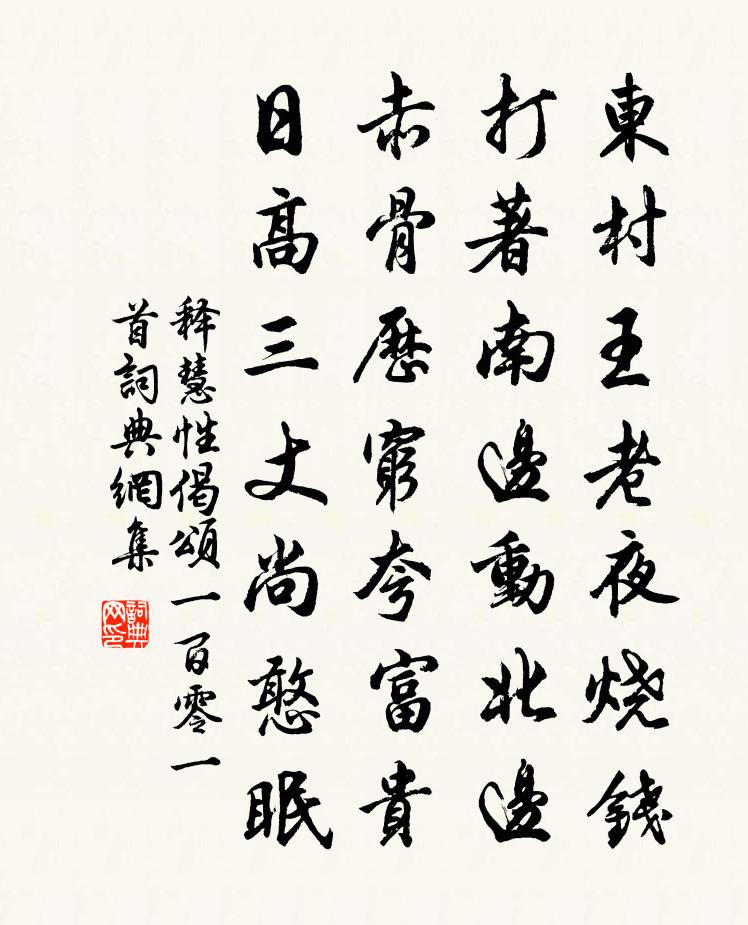 東村王老夜烧錢
打著南邊動北邊
赤骨歷窮夸富貴
日高三丈尚憨眠
释慧性偈頌一百零一
首詞典網集
詞典网印